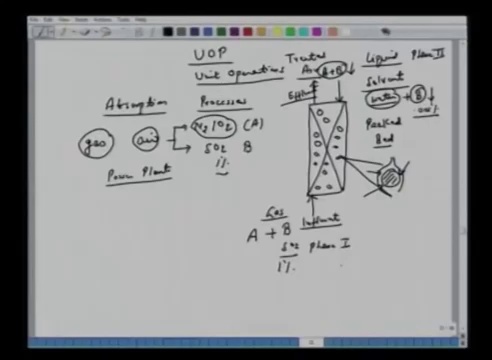 UOP
Unit Operations
Processes
Absorption
gas
air
N2/O2 (A)
SO2 B
1%
Power Plant
Treated
A+B ↓
Effluent
Liquid Phase II
Solvent
water + B ↓
Packed
Bed
Gas
Influent
A + B
SO2 Phase I
1%